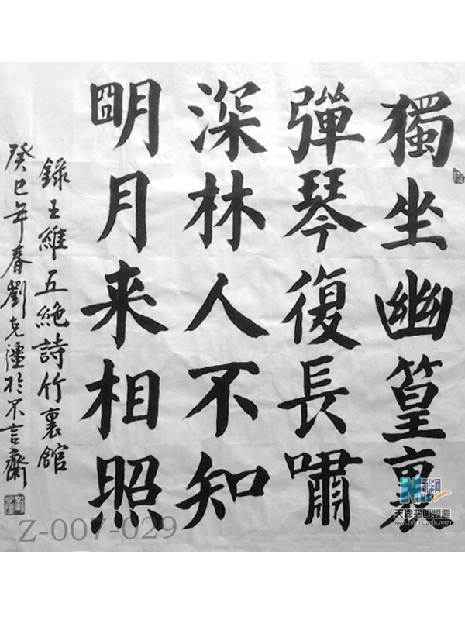 獨坐幽篁裏
彈琴復長嘯
深林人不知
明月来相照
錄王維五絶詩竹裏館
癸巳年春劉克漌於不言齋
Z-007-029